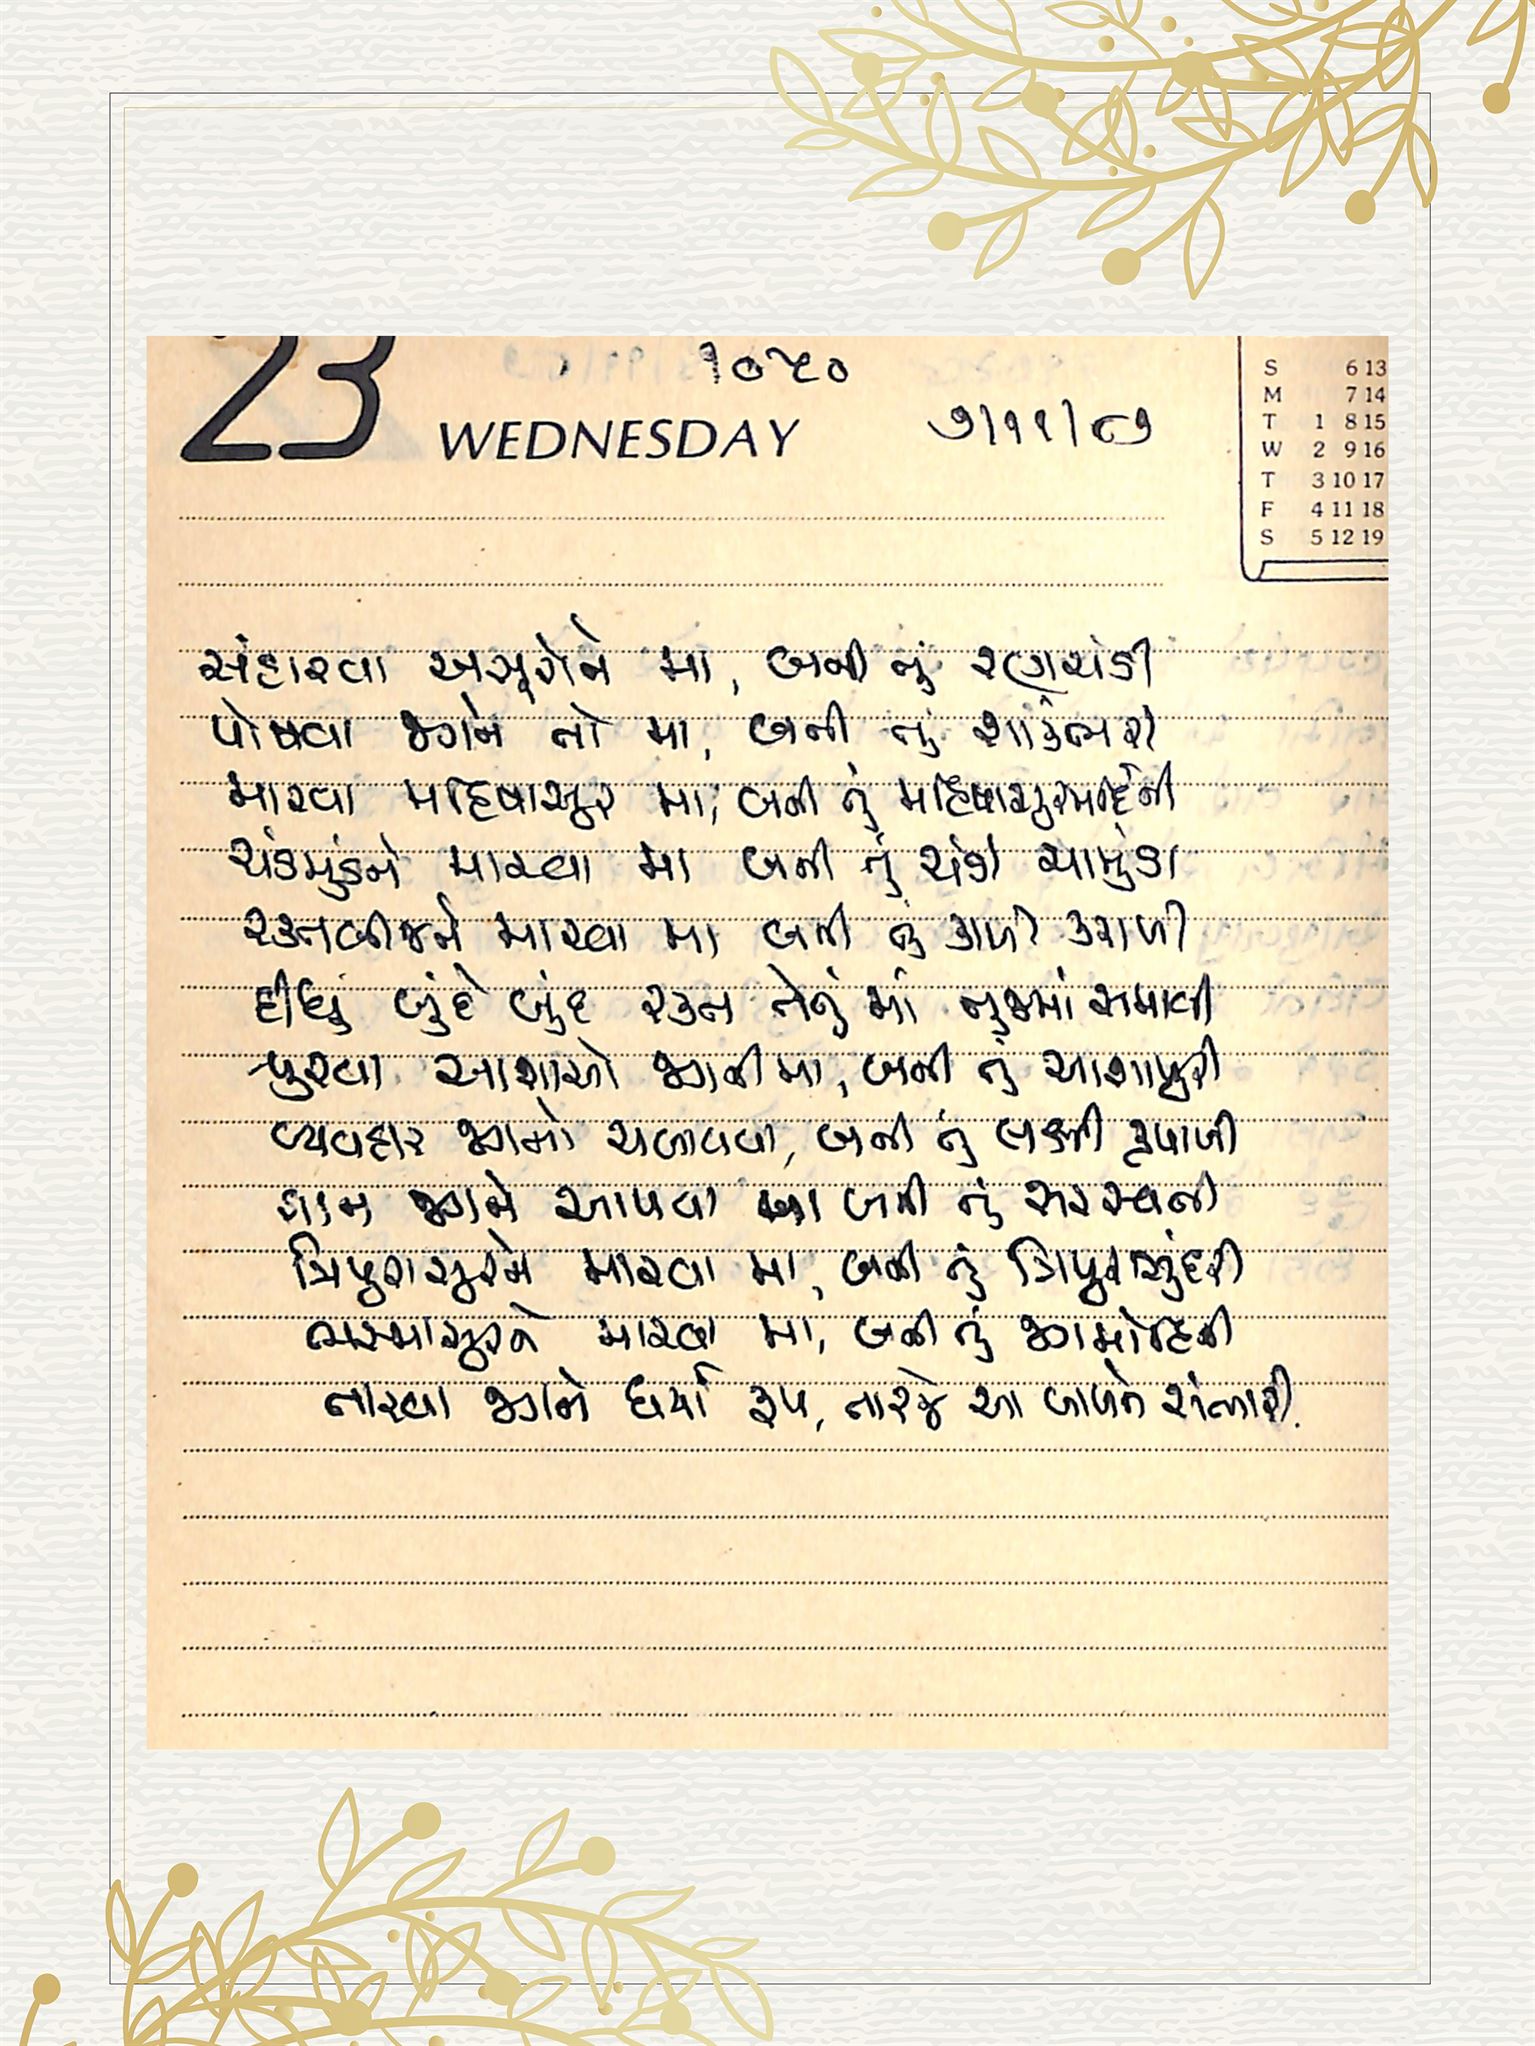 23 ૧૦૫૦
WEDNESDAY ૭/૧૧/૮૭
S 6 13
M 7 14
T 1 8 15
W 2 9 16
T 3 10 17
F 4 11 18
S 5 12 19
સંહારવા અસૂરોને મા, બની તું રણચંડી
પોષવા જગને તો મા, બની તું શાકંભરી
મારવા મહિષાસુર મા, બની તું મહિષાસુરમર્દિની
ચંડમુંડને મારવા મા બની તું ચંડી ચામુંડા
રક્તબીજને મારવા મા બની તું કાળી કરાળી
દીધું બુંદે બુંદ રક્ત તેનું માં તુજમાં સમાવી
પુરવા આશાઓ જગની મા, બની તું આશાપુરી
વ્યવહાર જગનો ચલાવવા, બની તું લક્ષ્મી રૂપાળી
જ્ઞાન જગને આપવા મા બની તું સરસ્વતી
ત્રિપુરાસુરને મારવા મા, બની તું ત્રિપુરાસુંદરી
ભસ્માસુરને મારવા મા, બની તું જગમોહિની
તારવા જગને ધર્યા રૂપ, તારજે આ બાળને સંભારી.